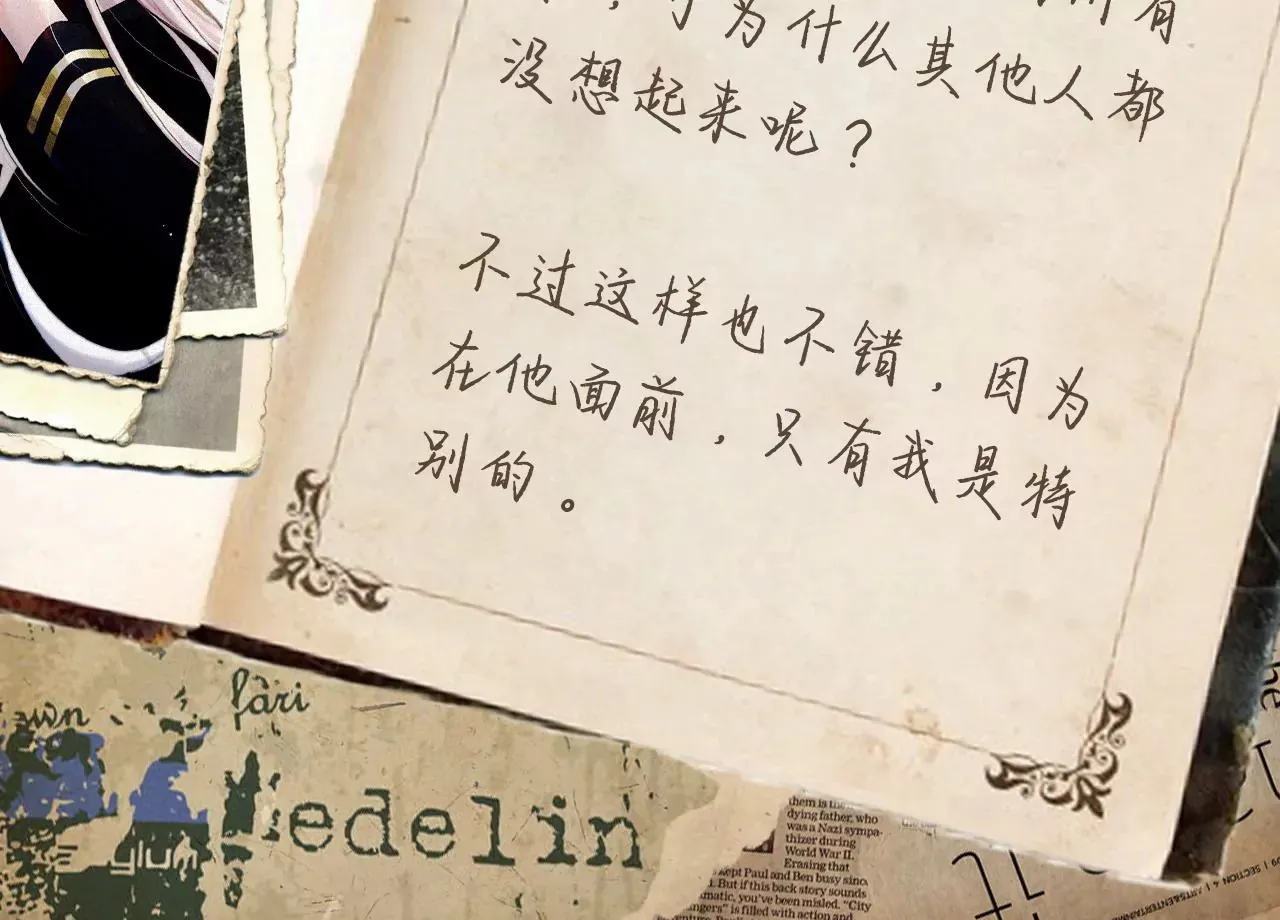 为什么其他人都
没想起来呢？
不过这样也不错，因为
在他面前，只有我是特
别的。
fâri
edelin
glum
dying father, who
was a Nazi sympa-
thizer during
World War II.
Erasing that
kept Paul and Ben busy since
But if this back story sounds
matic, you've been misled. “City
ngers” is filled with action and
the
SECTION 4 | ARTS&ENTERTAI